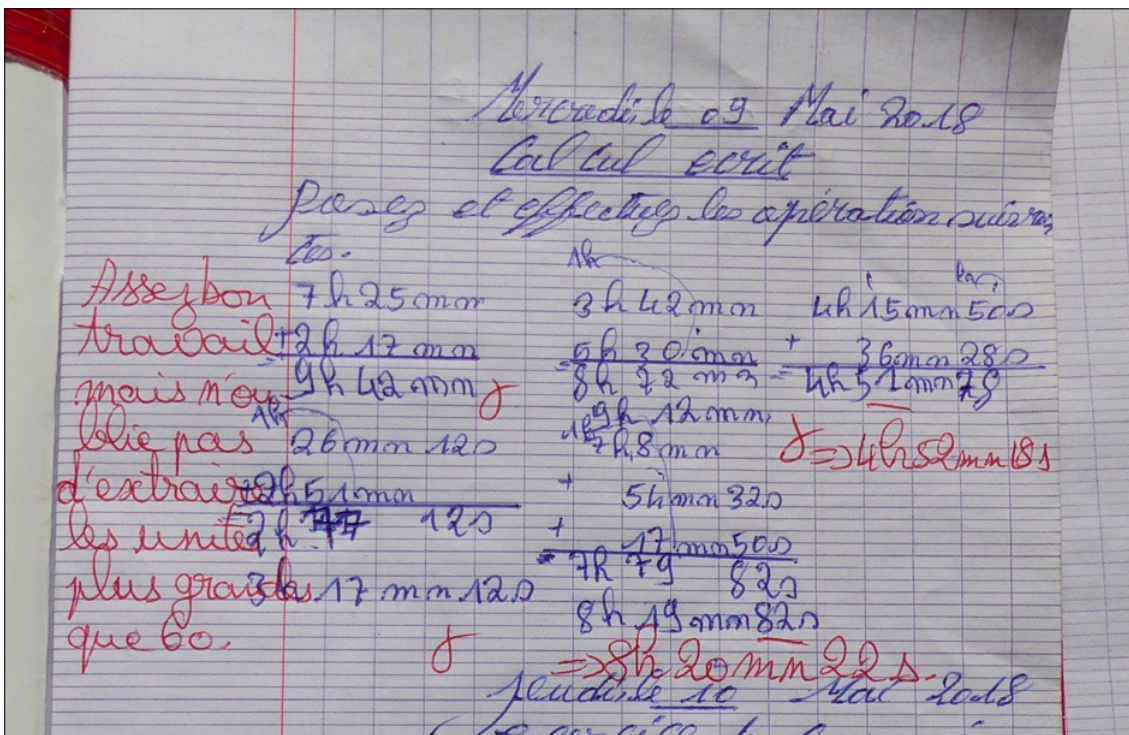 Mercredi le 09 Mai 2018
Calcul ecrit
Posez et effectuez les opération suivan
tes.
Assez bon
travail
mais n'ou
blie pas
d'extraire
les unités
plus grandes
que 60.
7h 25mn
+2h 17 mn
= 9h 42mn
1h
26mn 12s
+2h 51mn
= 2h 77 12s
3h 17 mn 12s
1h
3h 42mn
5h 30mn
8h 72 mn
9h 12mn
1h
7h 8mn
+ 54mn 32s
+ 17mn 50s
= 7h 79 82s
8h 19mn 82s
=> 8h 20mn 22s.
4h 15mn 50s
+ 36mn 28s
= 4h 51mn 78
=> 4h 52mn 18s
Jeudi le 10 Mai 2018